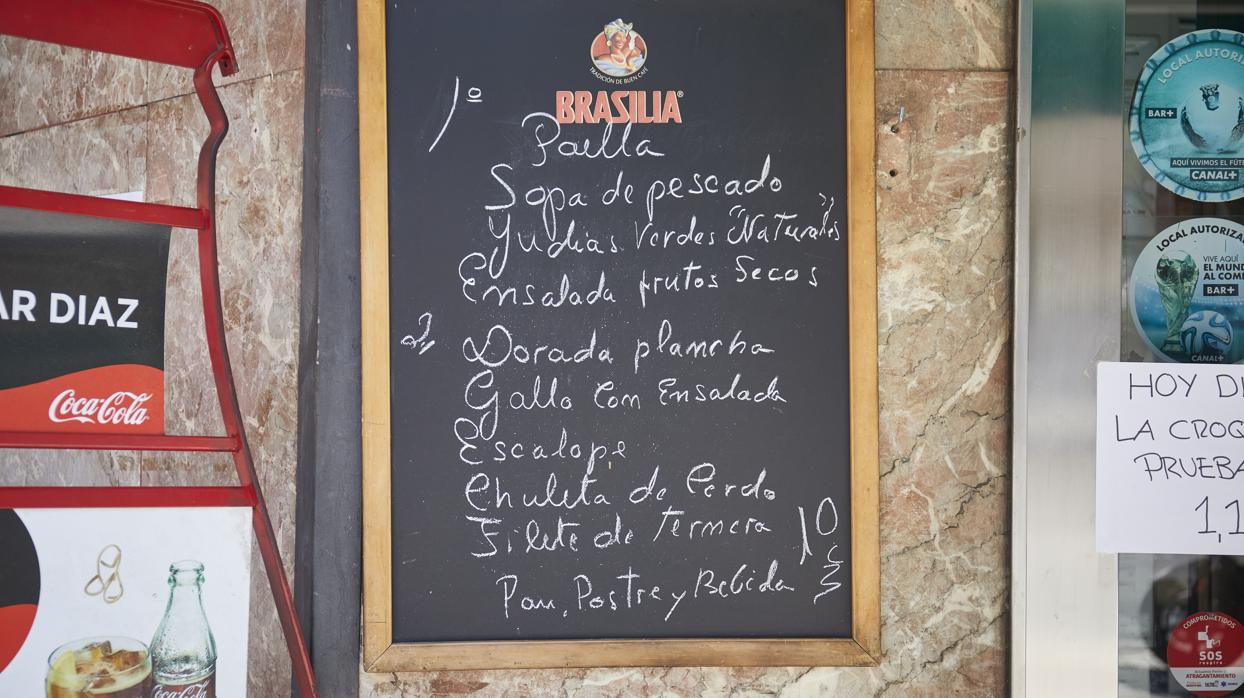 TRADICIÓN DE BUEN CAFÉ
BRASILIA®
1º
Paella
Sopa de pescado
Yudias Verdes "Naturales"
Ensalada frutos Secos
2º
Dorada plancha
Gallo Con Ensalada
Escalope
Chuleta de Cerdo
Filete de Ternera
10
Pan, Postre y Bebida
AR DIAZ
Coca-Cola
Coca-Cola
LOCAL AUTORIZA
BAR+
AQUÍ VIVIMOS EL FÚT
CANAL+
LOCAL AUTORIZA
VIVE AQUÍ
EL MUND
AL COMP
BAR+
CANAL+
HOY DI
LA CROQ
PRUEBA
1,1
COMPROMETIDOS
SOS
respira
ATRAGANTAMIENTO